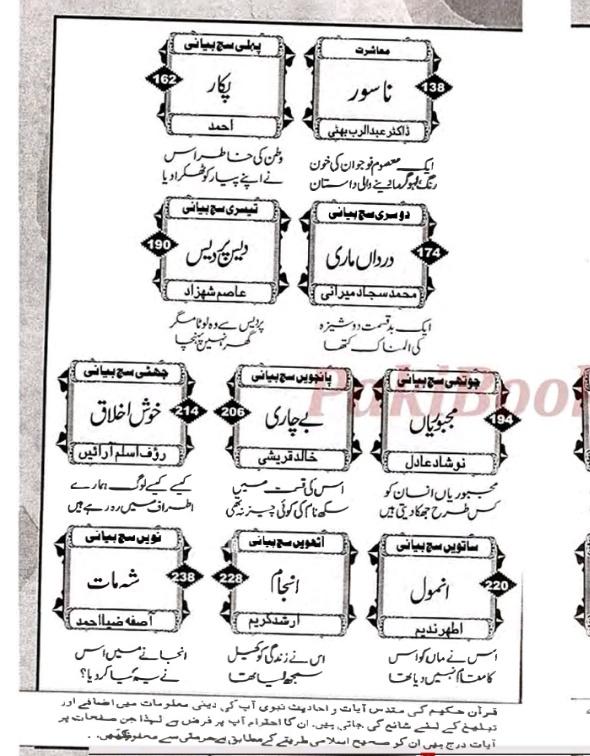 معاشرت
ناسور
138
ڈاکٹر عبدالرب بھٹی
ایک معصوم نوجوان کی خون
رنگ، لہو گرما دینے والی داستان
پہلی سچ بیانی
پکار
162
احمد
وطن کی خاطر اس
نے اپنے پیار کو ٹھکرا دیا
دوسری سچ بیانی
درداں ماری
174
محمد سجاد میرانی
ایک بدقسمت دوشیزہ
کی المناک کتھا
تیسری سچ بیانی
دیس پردیس
190
عاصم شہزاد
پردیس سے وہ لوٹا مگر
گھر نہیں پہنچا
PakiBoo
چوتھی سچ بیانی
مجبوریاں
194
نوشاد عادل
مجبوریاں انسان کو
کس طرح جھکا دیتی ہیں
پانچویں سچ بیانی
بے چاری
206
خالد قریشی
اس کی قسمت میں
سکھ نام کی کوئی چیز نہ تھی
چھٹی سچ بیانی
خوش اخلاق
214
رؤف اسلم آرائیں
کیسے کیسے لوگ ہمارے
اطراف میں رہ رہے ہیں
ساتویں سچ بیانی
انمول
220
اطہر ندیم
اس نے ماں کو اس
کا مقام نہیں دیا تھا
آٹھویں سچ بیانی
انجام
228
ارشد کریم
اس نے زندگی کو کھیل
سمجھ لیا تھا
نویں سچ بیانی
شہ مات
238
آصفہ ضیا احمد
انجانے میں اس
نے یہ کیا کر دیا؟
قرآن حکیم کی مقدس آیات و احادیث نبوی آپ کی دینی معلومات میں اضافے اور
تبلیغ کے لئے شائع کی جاتی ہیں۔ ان کا احترام آپ پر فرض ہے لہٰذا جن صفحات پر
آیات درج ہیں ان کو صحیح اسلامی طریقے کے مطابق بے حرمتی سے محفوظ رکھیں۔